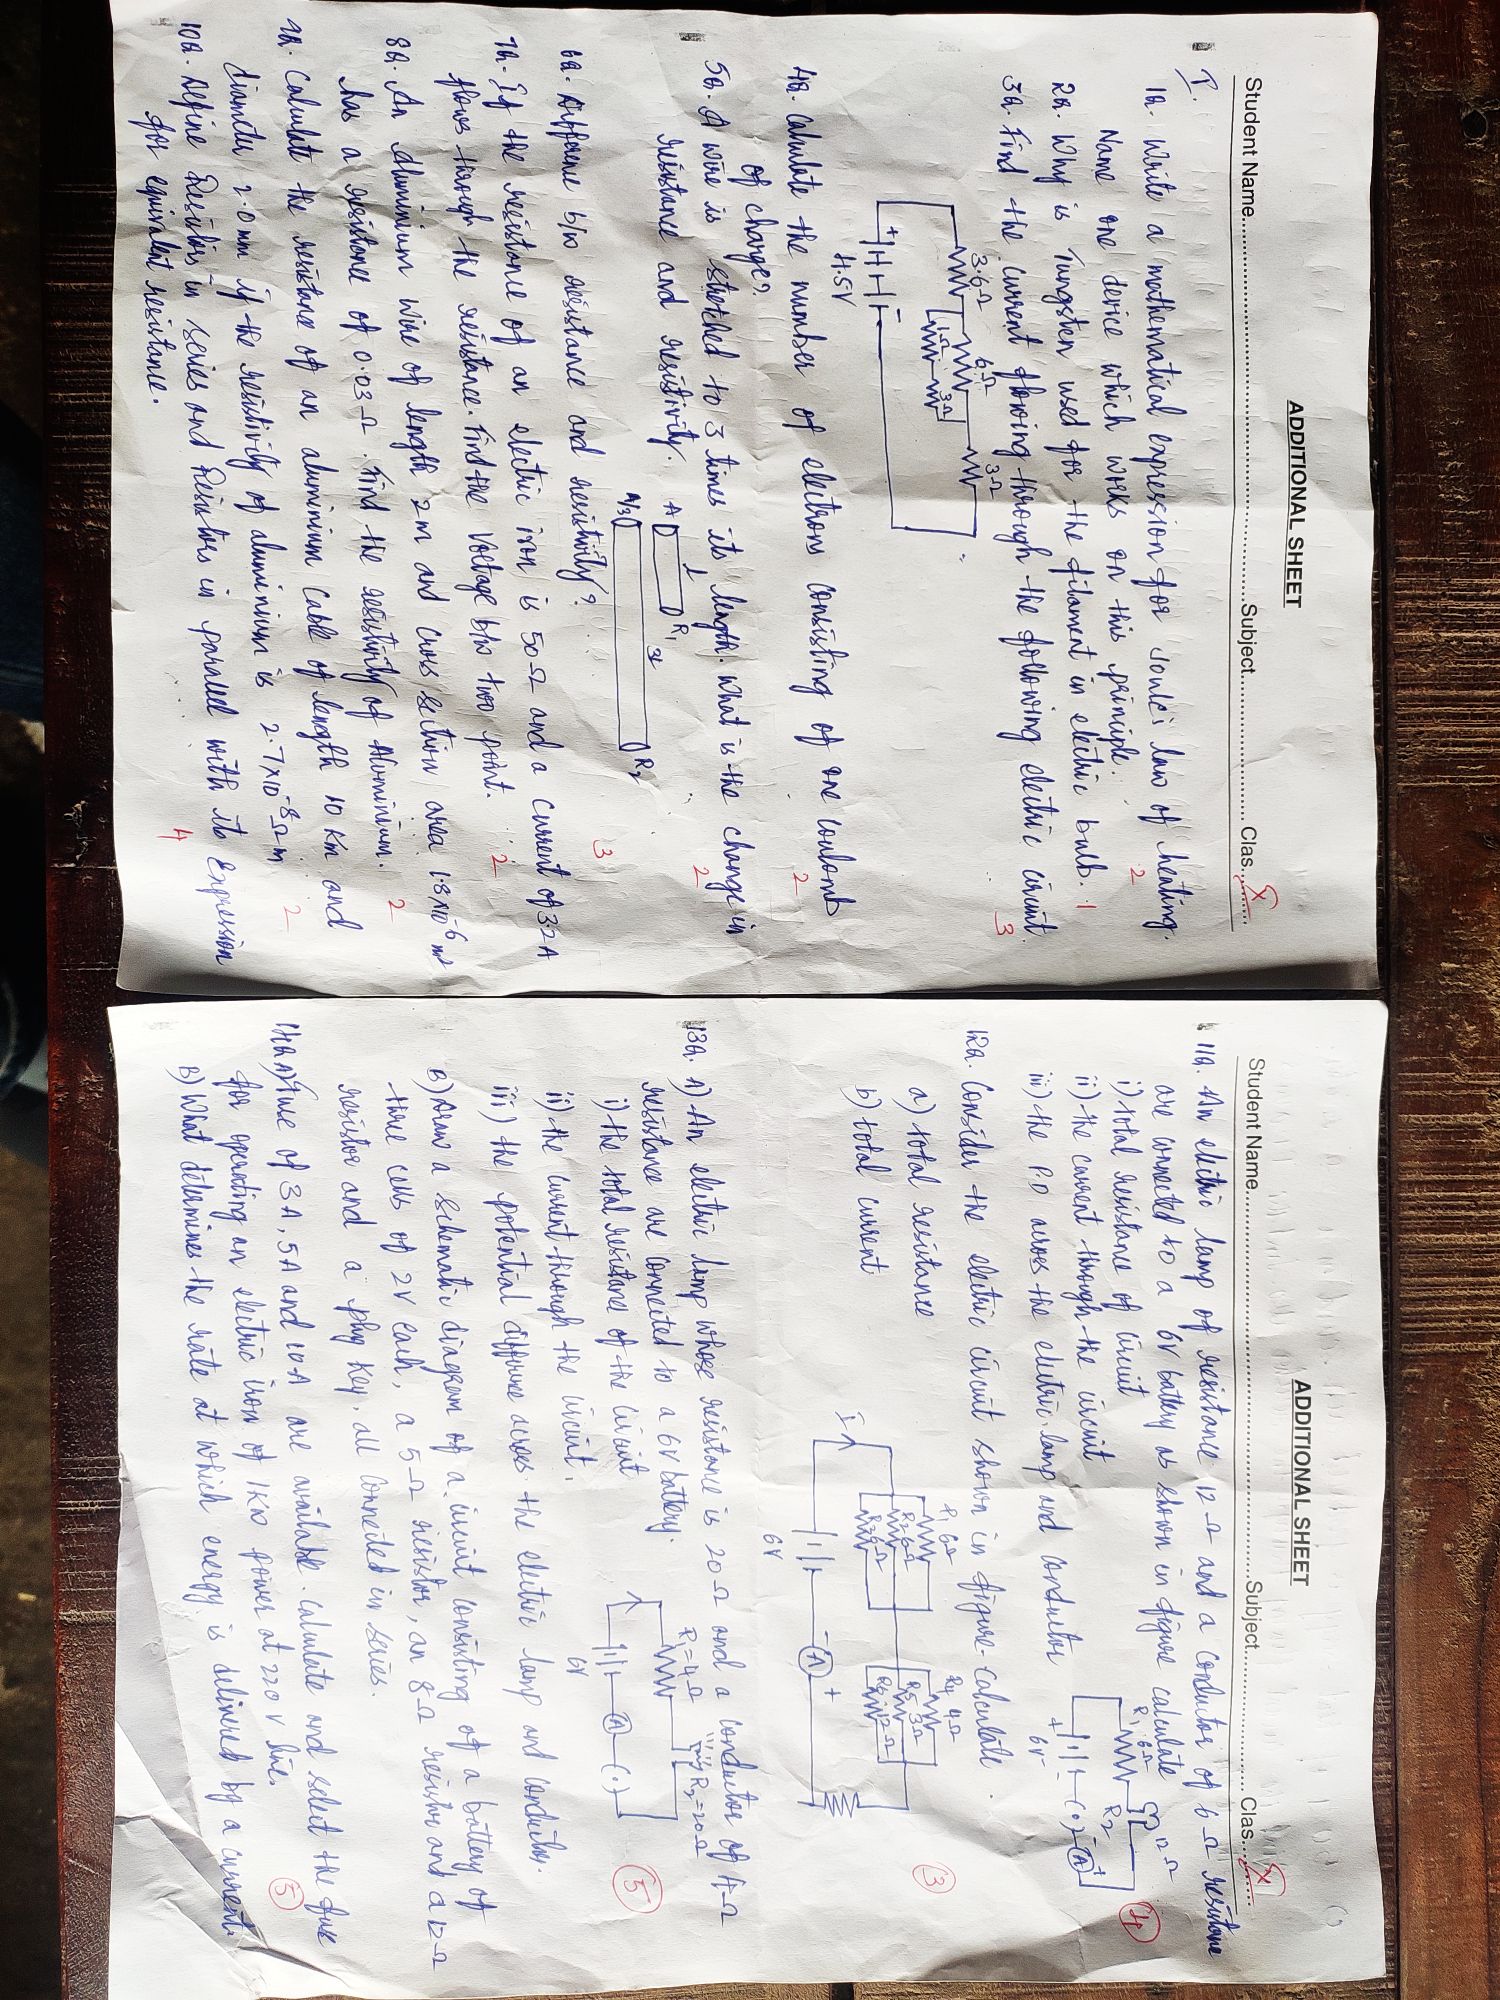 ADDITIONAL SHEET
Student Name..............................Subject.................... Clas....X....
I.
1Q. Write a mathematical expression for Joule's law of heating.
Name one device which works on this principle.
2
2Q. Why is Tungsten used for the filament in electric bulb. 1
3Q. Find the current flowing through the following electric circuit.
3
3.6Ω 6Ω 3Ω
1Ω 3Ω
+ -
4.5V
4Q. Calculate the number of electrons consisting of one coulomb
of charge?
2
5Q. A wire is stretched to 3 times its length. What is the change in
resistance and resistivity.
2
A l R1
A/3 3l R2
6Q. Difference b/w resistance and resistivity?
3
7Q. If the resistance of an electric iron is 50Ω and a current of 3.2A
flows through the resistance. Find the voltage b/w two point.
2
8Q. An aluminium wire of length 2m and cross section area 1.8×10-6 m2
has a resistance of 0.03Ω. Find the resistivity of Aluminium.
2
9Q. Calculate the resistance of an aluminium cable of length 10 Km and
diameter 2.0mm if the resistivity of aluminium is 2.7×10-8Ωm
2
10Q. Define Resistors in series and Resistors in parallel with its Expression
for equivalent resistance.
4
ADDITIONAL SHEET
Student Name..............................Subject.................... Clas....X....
11Q. An electric lamp of resistance 12Ω and a conductor of 6Ω resistane
are connected to a 6V battery as shown in figure calculate
i) total resistance of circuit
ii) the current through the circuit
iii) the P.D across the electric lamp and conductor
4
R1 6Ω 12Ω
R2
+ 6V - (.) - A +
12Q. Consider the electric circuit shown in figure. Calculate.
a) total resistance
b) total current
3
R1 6Ω R4 4Ω
R2 6Ω R5 3Ω
R3 6Ω R6 12Ω
I
6V - A +
13Q. A) An electric lamp whose resistance is 20Ω and a conductor of 4Ω
resistance are connected to a 6V battery.
i) the total resistance of the circuit
ii) the current through the circuit.
iii) the potential differene across the electric lamp and conductor.
R1=4Ω R2=20Ω
6V A (.)
5
B) Draw a schematic diagram of a circuit consisting of a battery of
three cells of 2V each, a 5Ω resistor, an 8Ω resistor and a 12Ω
resistor and a plug key, all connected in series.
14Q. A) Fuse of 3A, 5A and 10A are available. Calculate and select the fuse
for operating an electric iron of 1KW power at 220V line.
5
B) What determines the rate at which energy is delivered by a current.